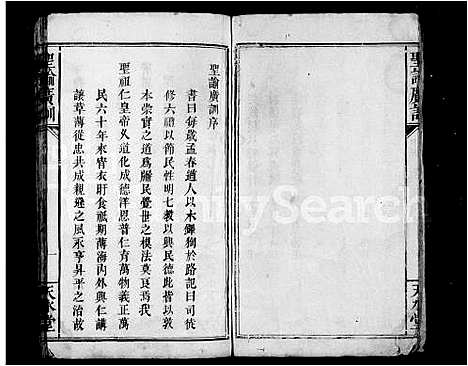 聖諭廣訓
聖諭廣訓序
書曰每歲孟春遒人以木鐸徇於路記曰司徒
修六禮以節民性明七教以興民德此皆以敦
本崇實之道為牖民覺世之模法莫良焉我
聖祖仁皇帝久道化成德洋恩普仁育萬物義正萬
民六十年來宵衣旰食祗期薄海內外興仁
讓革薄從忠共成親遜之風永享昇平之治故
聖諭廣訓
天水堂
天水堂
FamilySearch